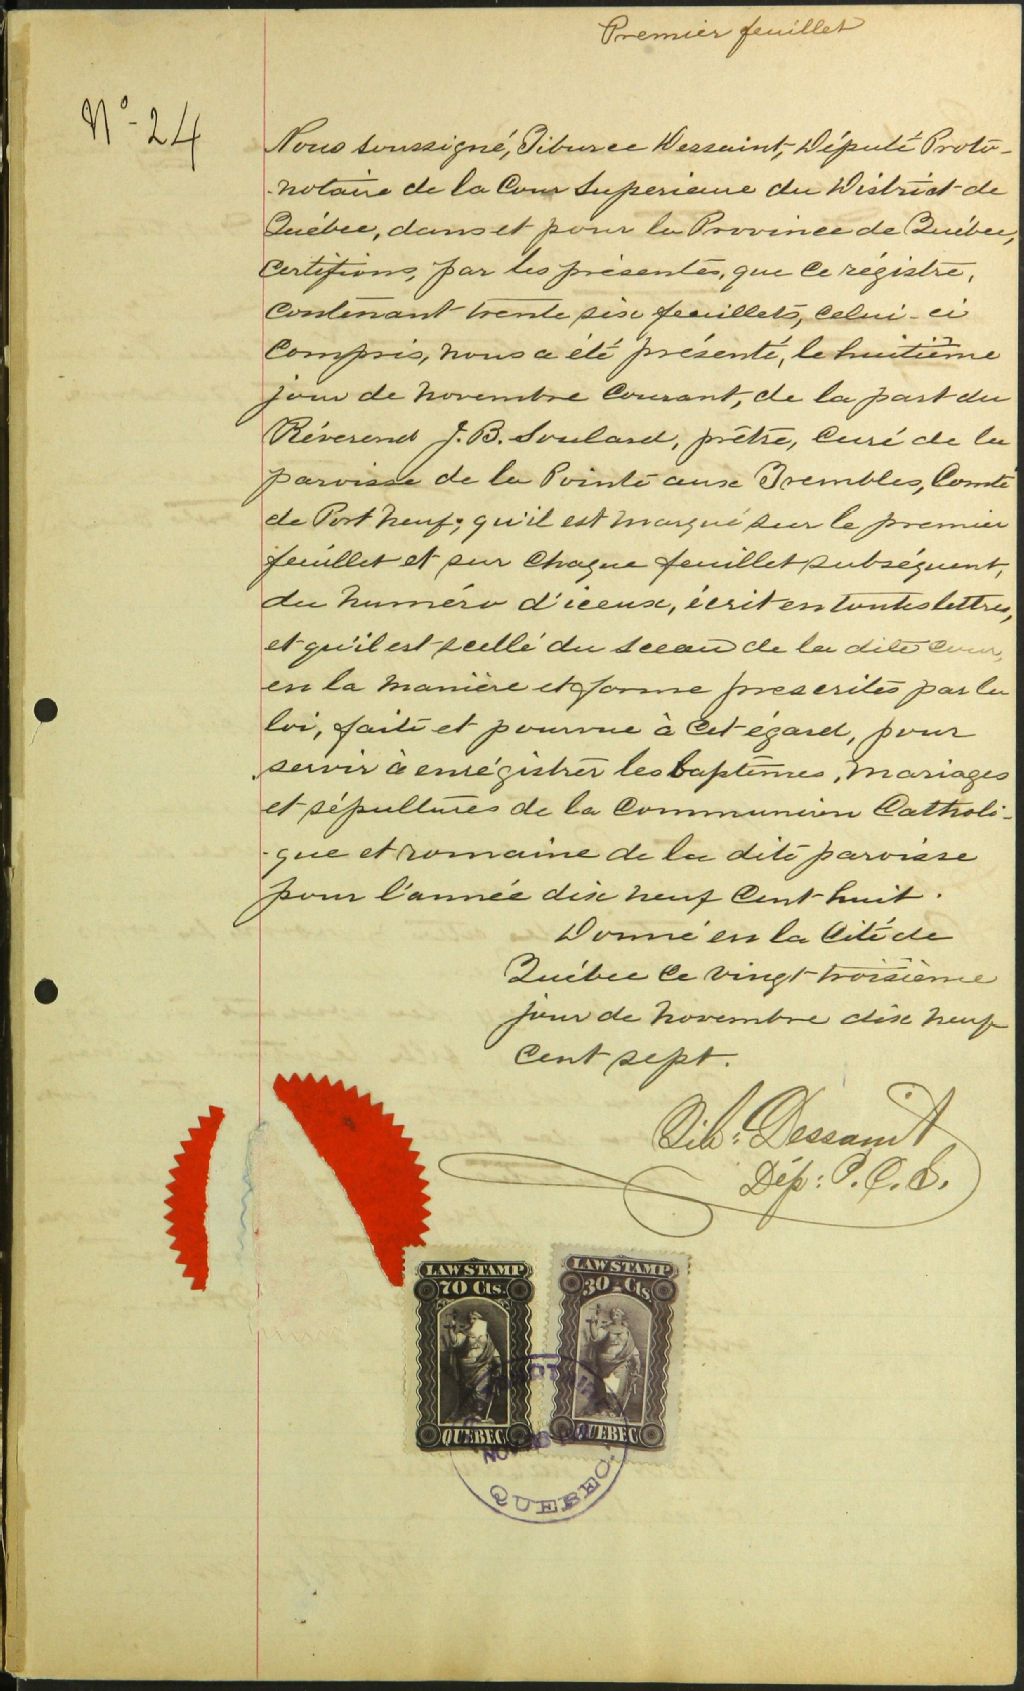 Premier feuillet
No - 24
Nous soussigné, Tiburce Dessaint, Député Proto-
-notaire de la Cour Superieure du District de
Québec, dans et pour la Province de Québec,
certifions, par les présentes, que ce régistre,
contenant trente six feuillets, celui-ci
compris, nous a été présenté, le huitième
jour de novembre courant, de la part du
Révérend J. B. Soulard, prêtre, Curé de la
paroisse de la Pointe aux Trembles, Comté
de Port neuf; qu'il est marqué sur le premier
feuillet et sur chaque feuillet subséquent,
du numéro d'iceux, écrit en toutes lettres,
et qu'il est scellé du sceau de la dite cour,
en la manière et forme prescrites par la
loi, faite et pourvue à cet égard, pour
servir à enrégistrer les baptêmes, mariages
et sépultures de la Communion Catholi-
-que et romaine de la dite paroisse
pour l'année dix neuf cent huit.
Donné en la Cité de
Québec ce vingt-troisième
jour de novembre dix neuf
cent sept.
Tib: Dessaint
Dép: P. C. S.
LAW STAMP LAW STAMP
70 Cts. 30 Cts
QUEBEC QUEBEC
NOV
QUEBEC.